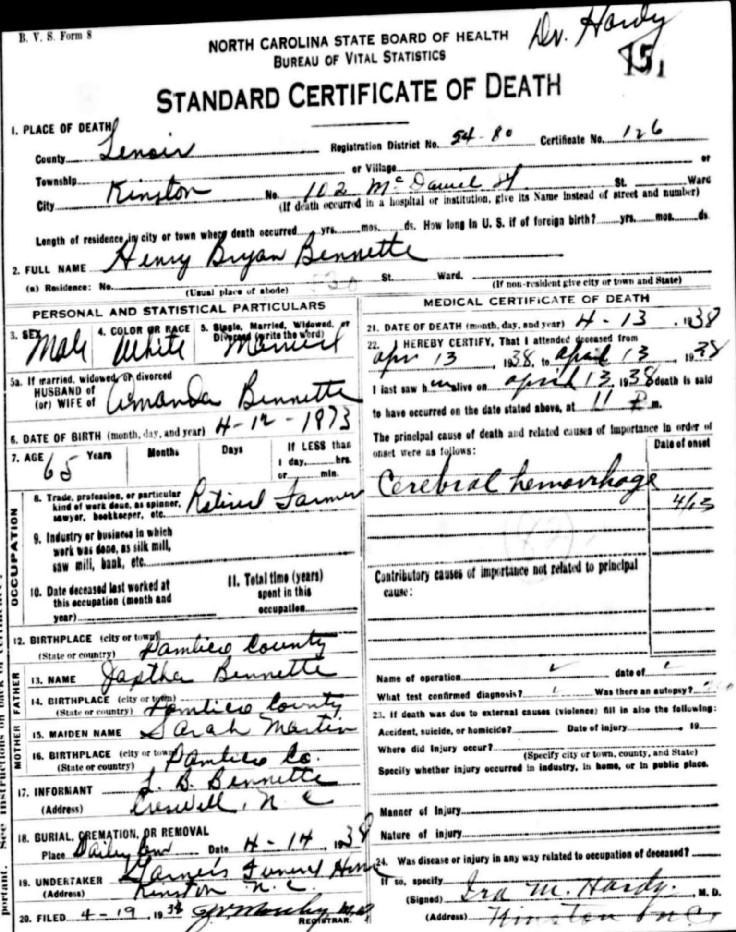 B. V. S. Form 8
Dr. Hardy
NORTH CAROLINA STATE BOARD OF HEALTH
BUREAU OF VITAL STATISTICS
151
STANDARD CERTIFICATE OF DEATH
1. PLACE OF DEATH
County Lenoir Registration District No. 54-80 Certificate No. 126
Township or Village or
City Kinston No. 102 McDaniel St St. Ward
(If death occurred in a hospital or institution, give its Name instead of street and number)
Length of residence in city or town where death occurred yrs. mos. ds. How long in U. S. if of foreign birth? yrs. mos. ds
2. FULL NAME Henry Bryan Bennette
(a) Residence: No. St. Ward.
(Usual place of abode) (If non-resident give city or town and State)
PERSONAL AND STATISTICAL PARTICULARS
3. SEX 4. COLOR OR RACE 5. Single, Married, Widowed, or Divorced (write the word)
Male White Married
5a. If married, widowed, or divorced
HUSBAND of
(or) WIFE of Amanda Bennette
6. DATE OF BIRTH (month, day, and year) 4-12-1873
7. AGE 65 Years Months Days If LESS than
1 day, hrs.
or min.
OCCUPATION
8. Trade, profession, or particular
kind of work done, as spinner,
sawyer, bookkeeper, etc. Retired Farmer
9. Industry or business in which
work was done, as silk mill,
saw mill, bank, etc.
10. Date deceased last worked at
this occupation (month and
year)
11. Total time (years)
spent in this
occupation
12. BIRTHPLACE (city or town)
(State or country) Pamlico County
FATHER
13. NAME Japtha Bennette
14. BIRTHPLACE (city or town)
(State or country) Pamlico County
MOTHER
15. MAIDEN NAME Sarah Martin
16. BIRTHPLACE (city or town)
(State or country) Pamlico Co.
17. INFORMANT L. B. Bennette
(Address) Creswell, N. C
18. BURIAL, CREMATION, OR REMOVAL
Place Date 4-14, 1938
19. UNDERTAKER Garner's Funeral Home
(Address) Kinston N. C.
20. FILED 4-19, 1938
REGISTRAR.
MEDICAL CERTIFICATE OF DEATH
21. DATE OF DEATH (month, day, and year) 4-13, 1938
22. I HEREBY CERTIFY, That I attended deceased from
Apr 13, 1938, to April 13, 1938
I last saw him alive on April 13, 1938 death is said
to have occurred on the date stated above, at 11 P m.
The principal cause of death and related causes of importance in order of
onset were as follows:
Date of onset
Cerebral hemorrhage
4/13
Contributory causes of importance not related to principal
cause:
Name of operation date of
What test confirmed diagnosis? Was there an autopsy?
23. If death was due to external causes (violence) fill in also the following:
Accident, suicide, or homicide? Date of injury 19
Where did injury occur?
(Specify city or town, county, and State)
Specify whether injury occurred in industry, in home, or in public place.
Manner of injury
Nature of injury
24. Was disease or injury in any way related to occupation of deceased?
If so, specify
(Signed) Ira M. Hardy, M. D.
(Address) Kinston N C